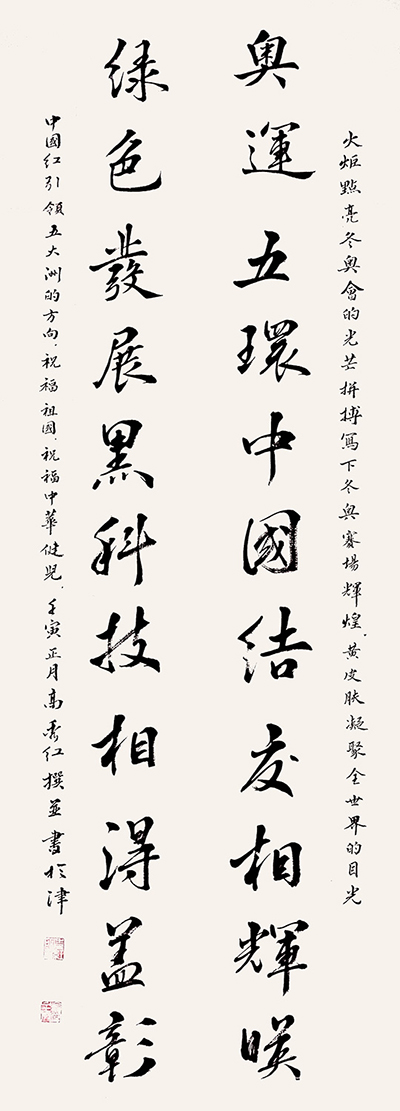 火炬點亮冬奧會的光芒拼搏寫下冬奧賽場輝煌.黄皮肤凝聚全世界的目光
奧運五環中國结友相輝暎
绿色發展黑科技相得盖彰
中國红引領五大洲的方向.祝福祖國.祝福中華健兒.壬寅正月高秀红撰並書於津